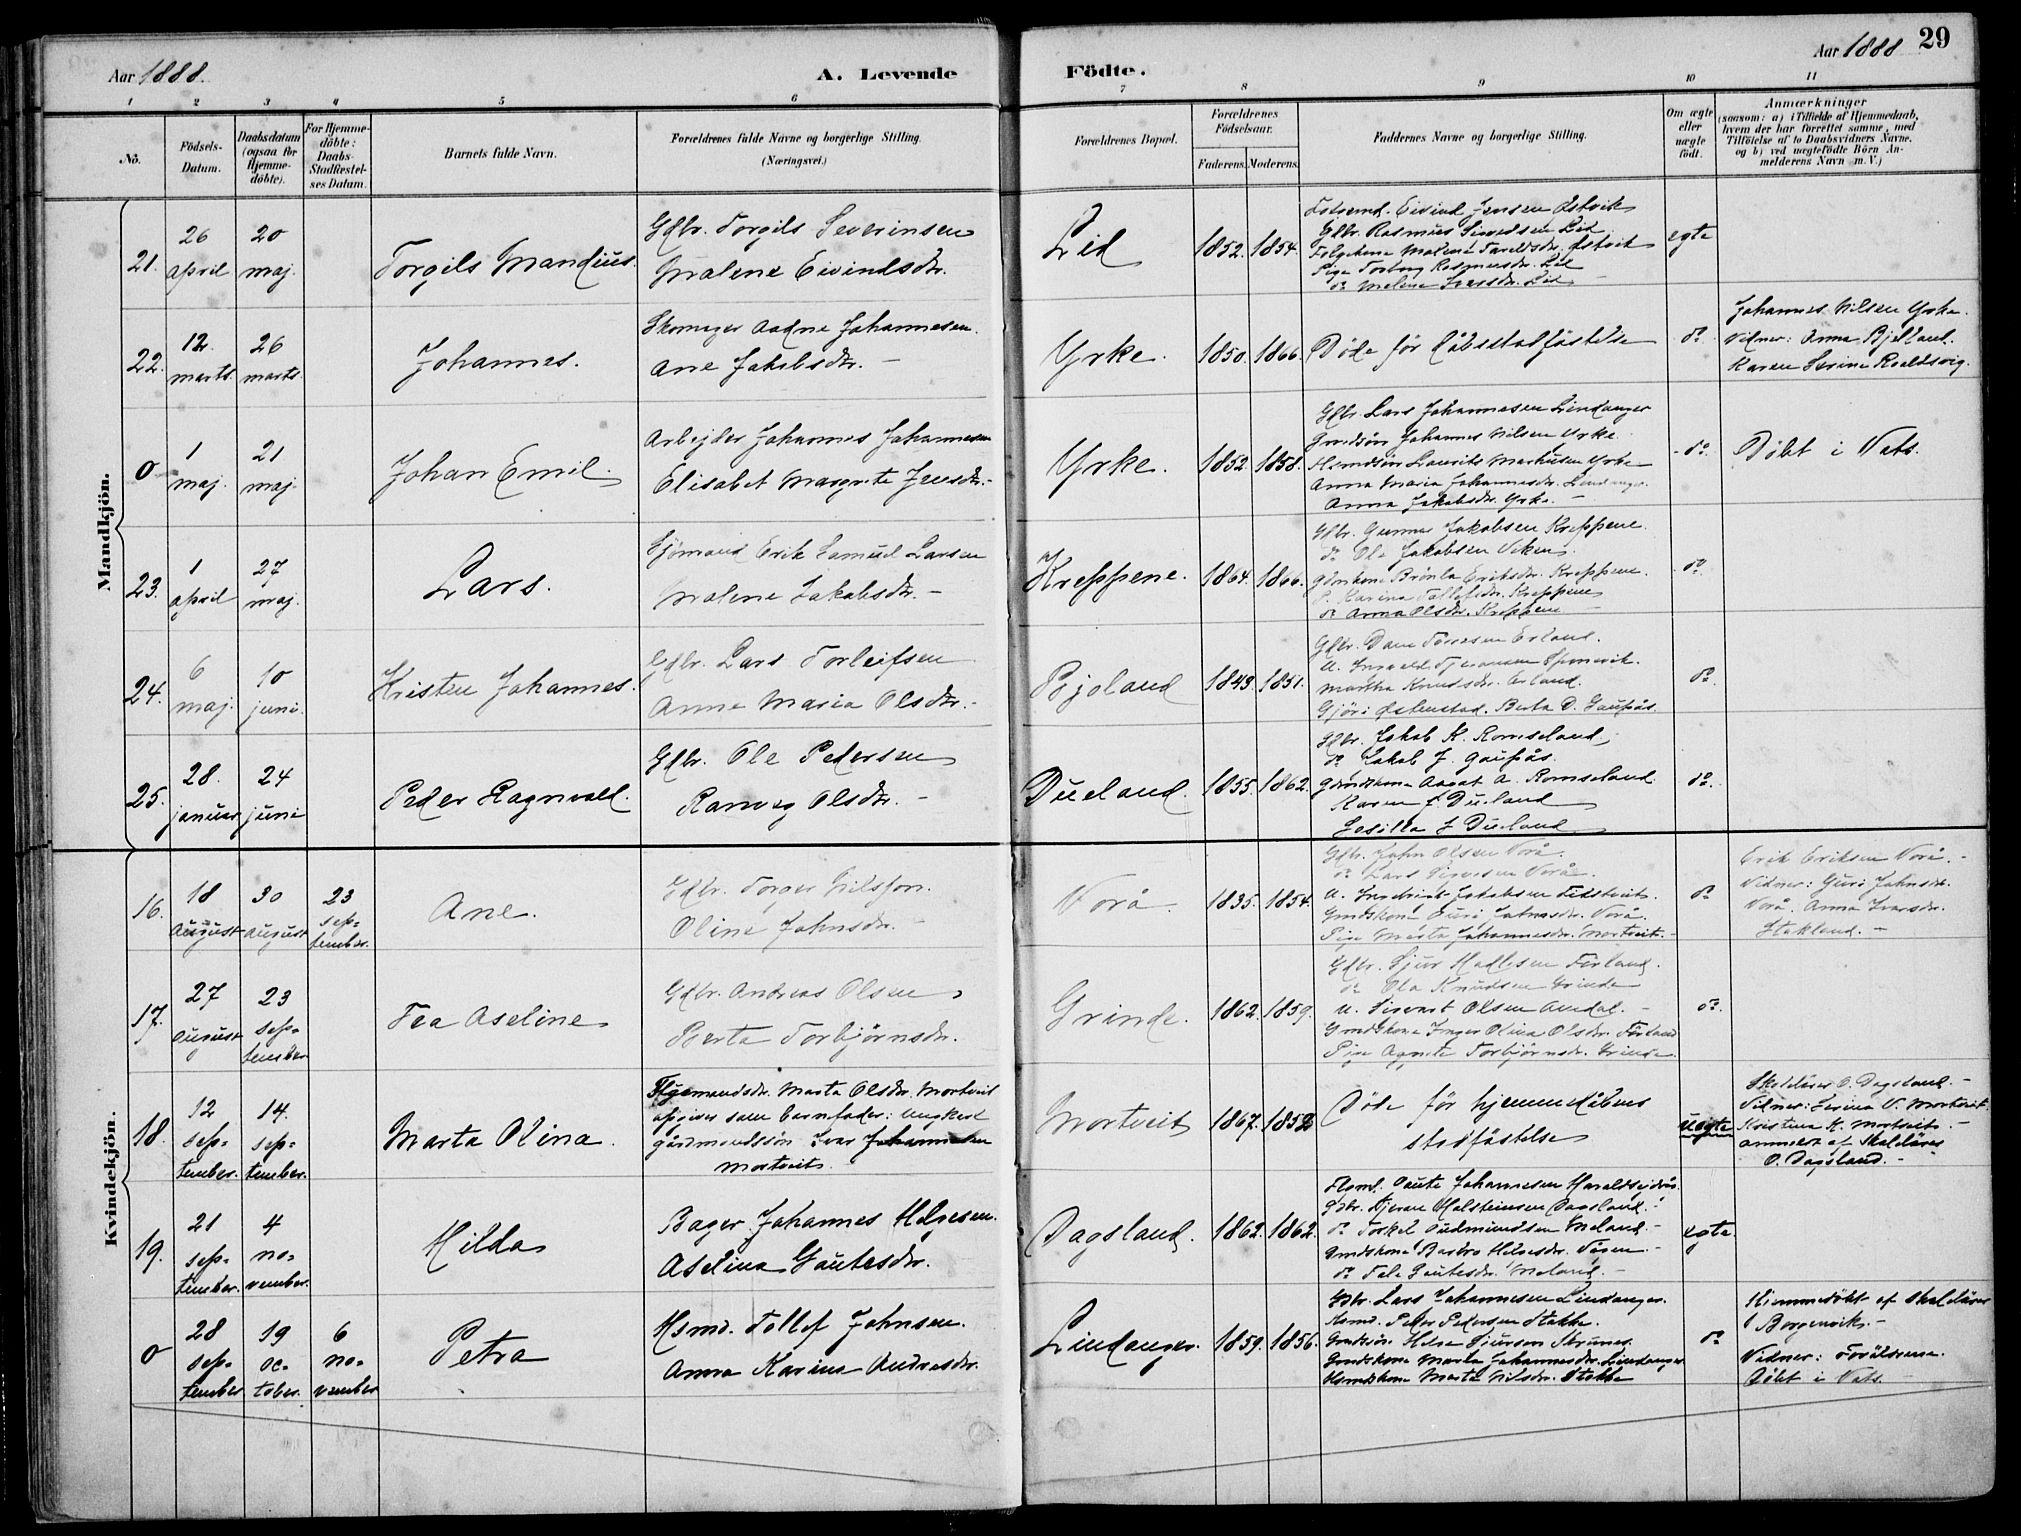 Aar 1888.
A. Levende
Födte.
Aar 1888
29
1 2 3 4 5 6 7 8 9 10 11
No.
Födsels-Datum.
Daabsdatum (ogsaa for Hjemme-döbte).
For Hjemme-döbte: Daabs-Stadfæstel-ses Datum.
Barnets fulde Navn.
Forældrenes fulde Navne og borgerlige Stilling. (Næringsvei.)
Forældrenes Bopæl.
Forældrenes Födselsaar.
Faderens. Moderens.
Faddernes Navne og borgerlige Stilling.
Om ægte eller uægte födt.
Anmærkninger
(saasom: a) i Tilfælde af Hjemmedaab, hvem der har forrettet samme, med Tilföielse af to Daabsvidners Navne, og b) ved uægtefödte Börn An-melderens Navn m. V.)
Mandkjön.
21. 26 april 20 maj. Torgils Mandius.
Gdbr. Torgils Severinsen
Malene Eivindsdtr.
Lid 1852. 1854.
Eivind Jensen Østvik
Gdbr. Rasmus Lid
Malene Østvik
Pige Torborg Rasmusdtr. Lid
do Malene Lid
egte
22. 12. marts. 26 marts. Johannes.
Skomager Aadne Johannesen.
Ane Jakobsdtr. –
Yrke. 1850. 1866. Døde før Dåbsstadfæstelse do.
Johannes Nilsen Yrke.
Vidner: Anna Bjelland.
Karen Serine
0 1 maj. 21 maj. Johan Emil.
Arbejder Johannes Johannesen
Elisabet Margrete Jensdtr. –
Yrke. 1852. 1858.
Gdbr. Lars Johannesen Lindanger
Grmdsøn Johannes Nilsen Yrke.
Laurits Markusen Yrke
Anna Maria Johannesdtr. Lindanger.
Anna Jakobsdtr. Yrke. –
do. Døbt i Vats.
23. 1 april 27 maj. Lars.
Sjømand Erik Samuel Larsen
Malene Jakobsdtr. –
Kreppene. 1864. 1866.
Gdbr. Gunnar Jakobsen Kreppene.
do Ole Jakobsen
Eriksdr. Kreppene.
P. Karina Tollefsdr. Kreppene
do Anna Olsdr. Kreppene –
do.
24. 6 maj. 10 juni. Kristen Johannes.
Gdbr. Lars Torleifsen
Anne Maria Olsdtr. –
Bjoland 1843. 1851.
Gdbr. Erland.
Martha Knudsdr. Erland.
Berta D. Gaupås
do.
25. 28. januar 24 juni Peder Ragnvald.
Gdbr. Ole Pedersen
Ranveg Olsdtr. –
Dueland. 1855. 1862.
Gdbr. Jakob K. Romseland,
do Jakob J. Gaupås.
Grmdskone Aagot A. Romseland.
Karen Dueland
Dueland
do.
Kvindekjön.
16. 18 august 30 august 23 sep=tember. Ane.
Gdbr. Torger Nilsson.
Oline Johnsdtr. –
Vorå. 1835. 1854.
Gdbr. John Olsen Vorå.
do Lars Vorå.
Grmdskone Guri Vorå.
Pige Marta Johannesdr. Mortveit. –
do
Erik Eriksen Vorå. –
Vidner: Guri Johnsdr.
Vorå. Anna Ivarsdr.
Stakland. –
17. 27 august 23 sep=tember Tea Aseline
Gdbr. Andreas Olsen
Berta Torbjørnsdr.
Grinde. 1862. 1859.
Gdbr. Sjur Førland.
do Ole Knudsen Grinde
U. Sivert Olsen Amdal. –
Grmdskone Inger Olina Olsdr. Førland
Pige Agnete Torbjørnsdr. Grinde
do.
18. 12 sep=tember. 14. sep=tember. Marta Olina.
Marta Olsdr. Mortveit
opgiver som barnefader: ungkarl
gårdmandssøn Ivar Johannesen
Mortveit.
Mortveit 1867. 1852
Døde før hjemmedåbens
stadfæstelse
uegte
Skolelærer O. Dagsland. –
Vidner: Serina N. Mortveit
Kristina K. Mortveit. –
anmeldt af Skolelærer
O. Dagsland. –
19. 21 sep=tember. 4 no=vember. Hilda
Bager Johannes Helgesen.
Aselina Gautesdr.
Dagsland. 1862. 1862.
Gaute Johannesen
Gdbr. Holsteinsen Dagsland. –
do Torkel Gudmundsen Meland. –
Grmdskone Barbro Helgesdr. –
do Gautesdr. Meland. –
egte.
0 28 sep=tember 19 oc=tober. 6 no=vember Petra
Hsmd. Tollef Johnsen.
Anna Karina Andreasdr.
Lindanger. 1859. 1856.
Gdbr. Lars Johannesen Lindanger.
Hsmd. Peder Pedersen Stakke.
Grmdsøn Helge Sjursen
Grmdskone Marta Johannesdr. Lindanger
Hsmdskone Marta Nilsdr. Stakke
do
Hjemmedøbt af Skolelærer
Borgenvik. –
Vidner: Forældrene.
Døbt i Vats.